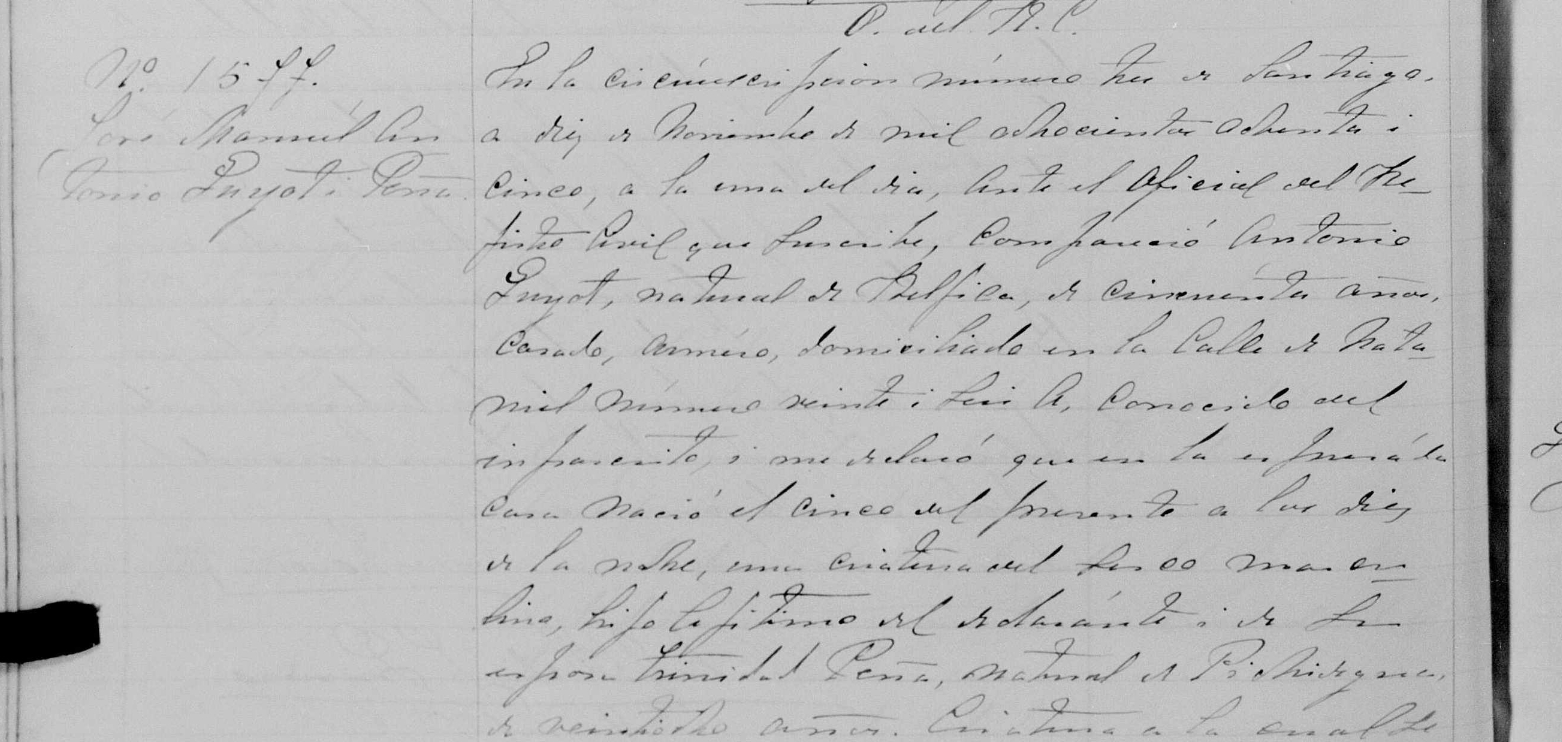 O. del R. C.
Nº. 1577.
José Manuel An
tonio Guyot i Peña.
En la circunscripcion número tres de Santiago,
a diez de Noviembre de mil ochocientos ochenta i
cinco, a la una del dia, ante el Oficial del Re_
jistro Civil que suscribe, compareció Antonio
Guyot, natural de Béljica, de cincuenta años,
casado, armero, domiciliado en la Calle de Nata_
niel número veinte i seis A, conocido del
infrascrito, i me declaró que en la espresada
casa nació el cinco del presente a las diez
de la noche, una criatura del secso mascu_
lino, hijo lejitimo del declarante i de su
esposa Trinidad Peña, natural de Pichidegua,
de veintiocho años. Criatura a la cual se